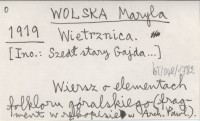 0
WOLSKA Maryla
1919 Wietrznica.
[Inc.: Szedł stary Gajda...]
Wiersz o elementach
folkloru góralskiego (frag-
ment w rękopisie w Arch. Pawl.)